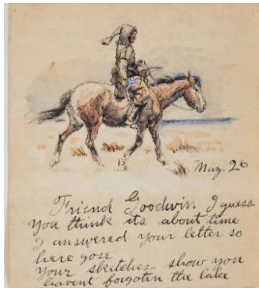 May 26
Friend Goodwin. I guess
You think its about time
I answered your letter so
here gose
Your sketches show you
havent forgotin the lake